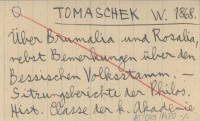 TOMASCHEK W. 1868.
Über Brumalia und Rosalia,
nebst Bemerkungen über den
Bessischen Volksstamm. —
Sitzungsberichte der Philos.
Hist. Classe der k. Akademie